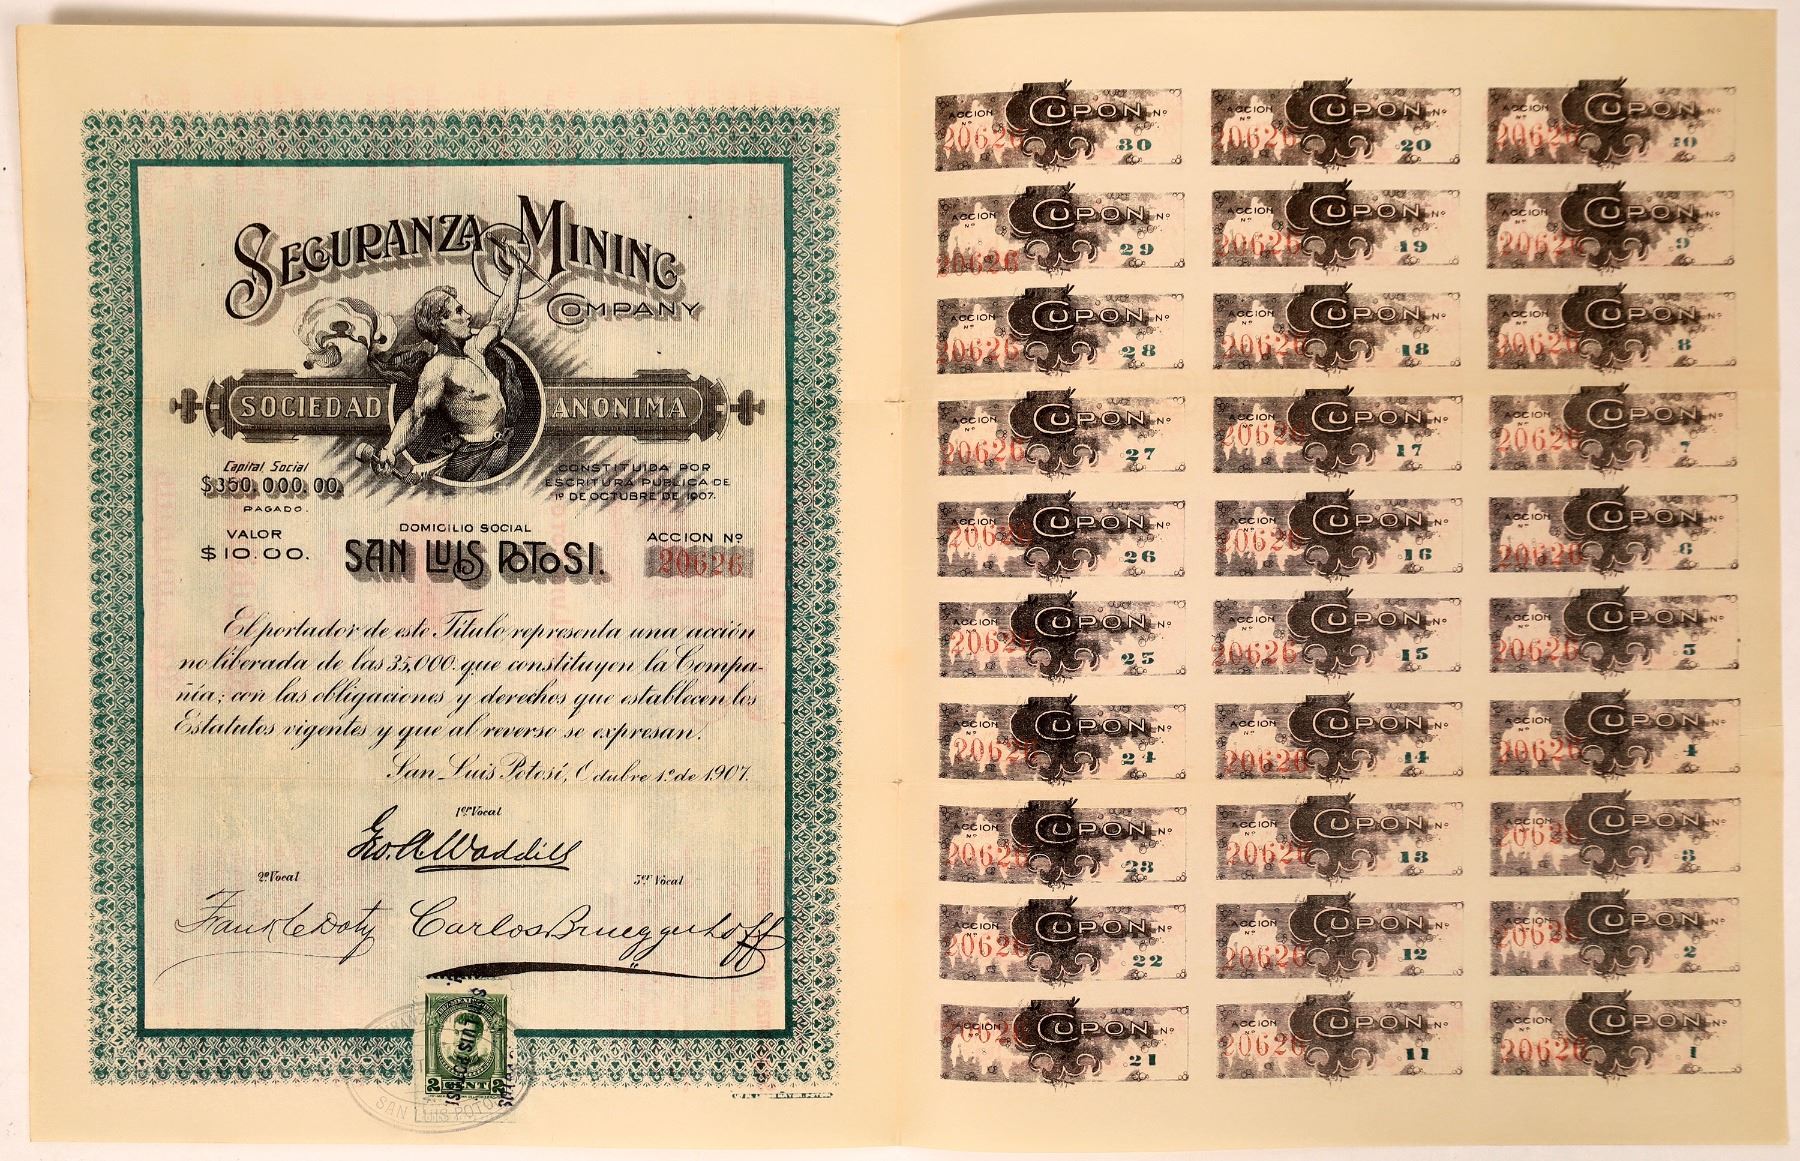 SEGURANZA MINING
COMPANY
SOCIEDAD ANONIMA
Capital Social
$350,000.00.
PAGADO.
CONSTITUIDA POR
ESCRITURA PUBLICA DE
1º DE OCTUBRE DE 1907.
VALOR
$10.00.
DOMICILIO SOCIAL
SAN LUIS POTOSI.
ACCION Nº
20626
El portador de este Título representa una acción
no liberada de las 35,000. que constituyen la Compa-
ñía; con las obligaciones y derechos que establecen los
Estatutos vigentes y que al reverso se expresan.
San Luis Potosí, Octubre 1.º de 1907.
1er Vocal
Geo. A. Waddill
2º Vocal
3er Vocal
Frank C Doty
Carlos Brueggerhoff
2 CENT 2
SAN LUIS POTOSI
SAN LUIS POTO
ACCION Nº 20626 CUPON Nº 30
ACCION Nº 20626 CUPON Nº 20
ACCION Nº 20626 CUPON Nº 10
ACCION Nº 20626 CUPON Nº 29
ACCION Nº 20626 CUPON Nº 19
ACCION Nº 20626 CUPON Nº 9
ACCION Nº 20626 CUPON Nº 28
ACCION Nº 20626 CUPON Nº 18
ACCION Nº 20626 CUPON Nº 8
ACCION Nº 20626 CUPON Nº 27
ACCION Nº 20626 CUPON Nº 17
ACCION Nº 20626 CUPON Nº 7
ACCION Nº 20626 CUPON Nº 26
ACCION Nº 20626 CUPON Nº 16
ACCION Nº 20626 CUPON Nº 6
ACCION Nº 20626 CUPON Nº 25
ACCION Nº 20626 CUPON Nº 15
ACCION Nº 20626 CUPON Nº 5
ACCION Nº 20626 CUPON Nº 24
ACCION Nº 20626 CUPON Nº 14
ACCION Nº 20626 CUPON Nº 4
ACCION Nº 20626 CUPON Nº 23
ACCION Nº 20626 CUPON Nº 13
ACCION Nº 20626 CUPON Nº 3
ACCION Nº 20626 CUPON Nº 22
ACCION Nº 20626 CUPON Nº 12
ACCION Nº 20626 CUPON Nº 2
ACCION Nº 20626 CUPON Nº 21
ACCION Nº 20626 CUPON Nº 11
ACCION Nº 20626 CUPON Nº 1